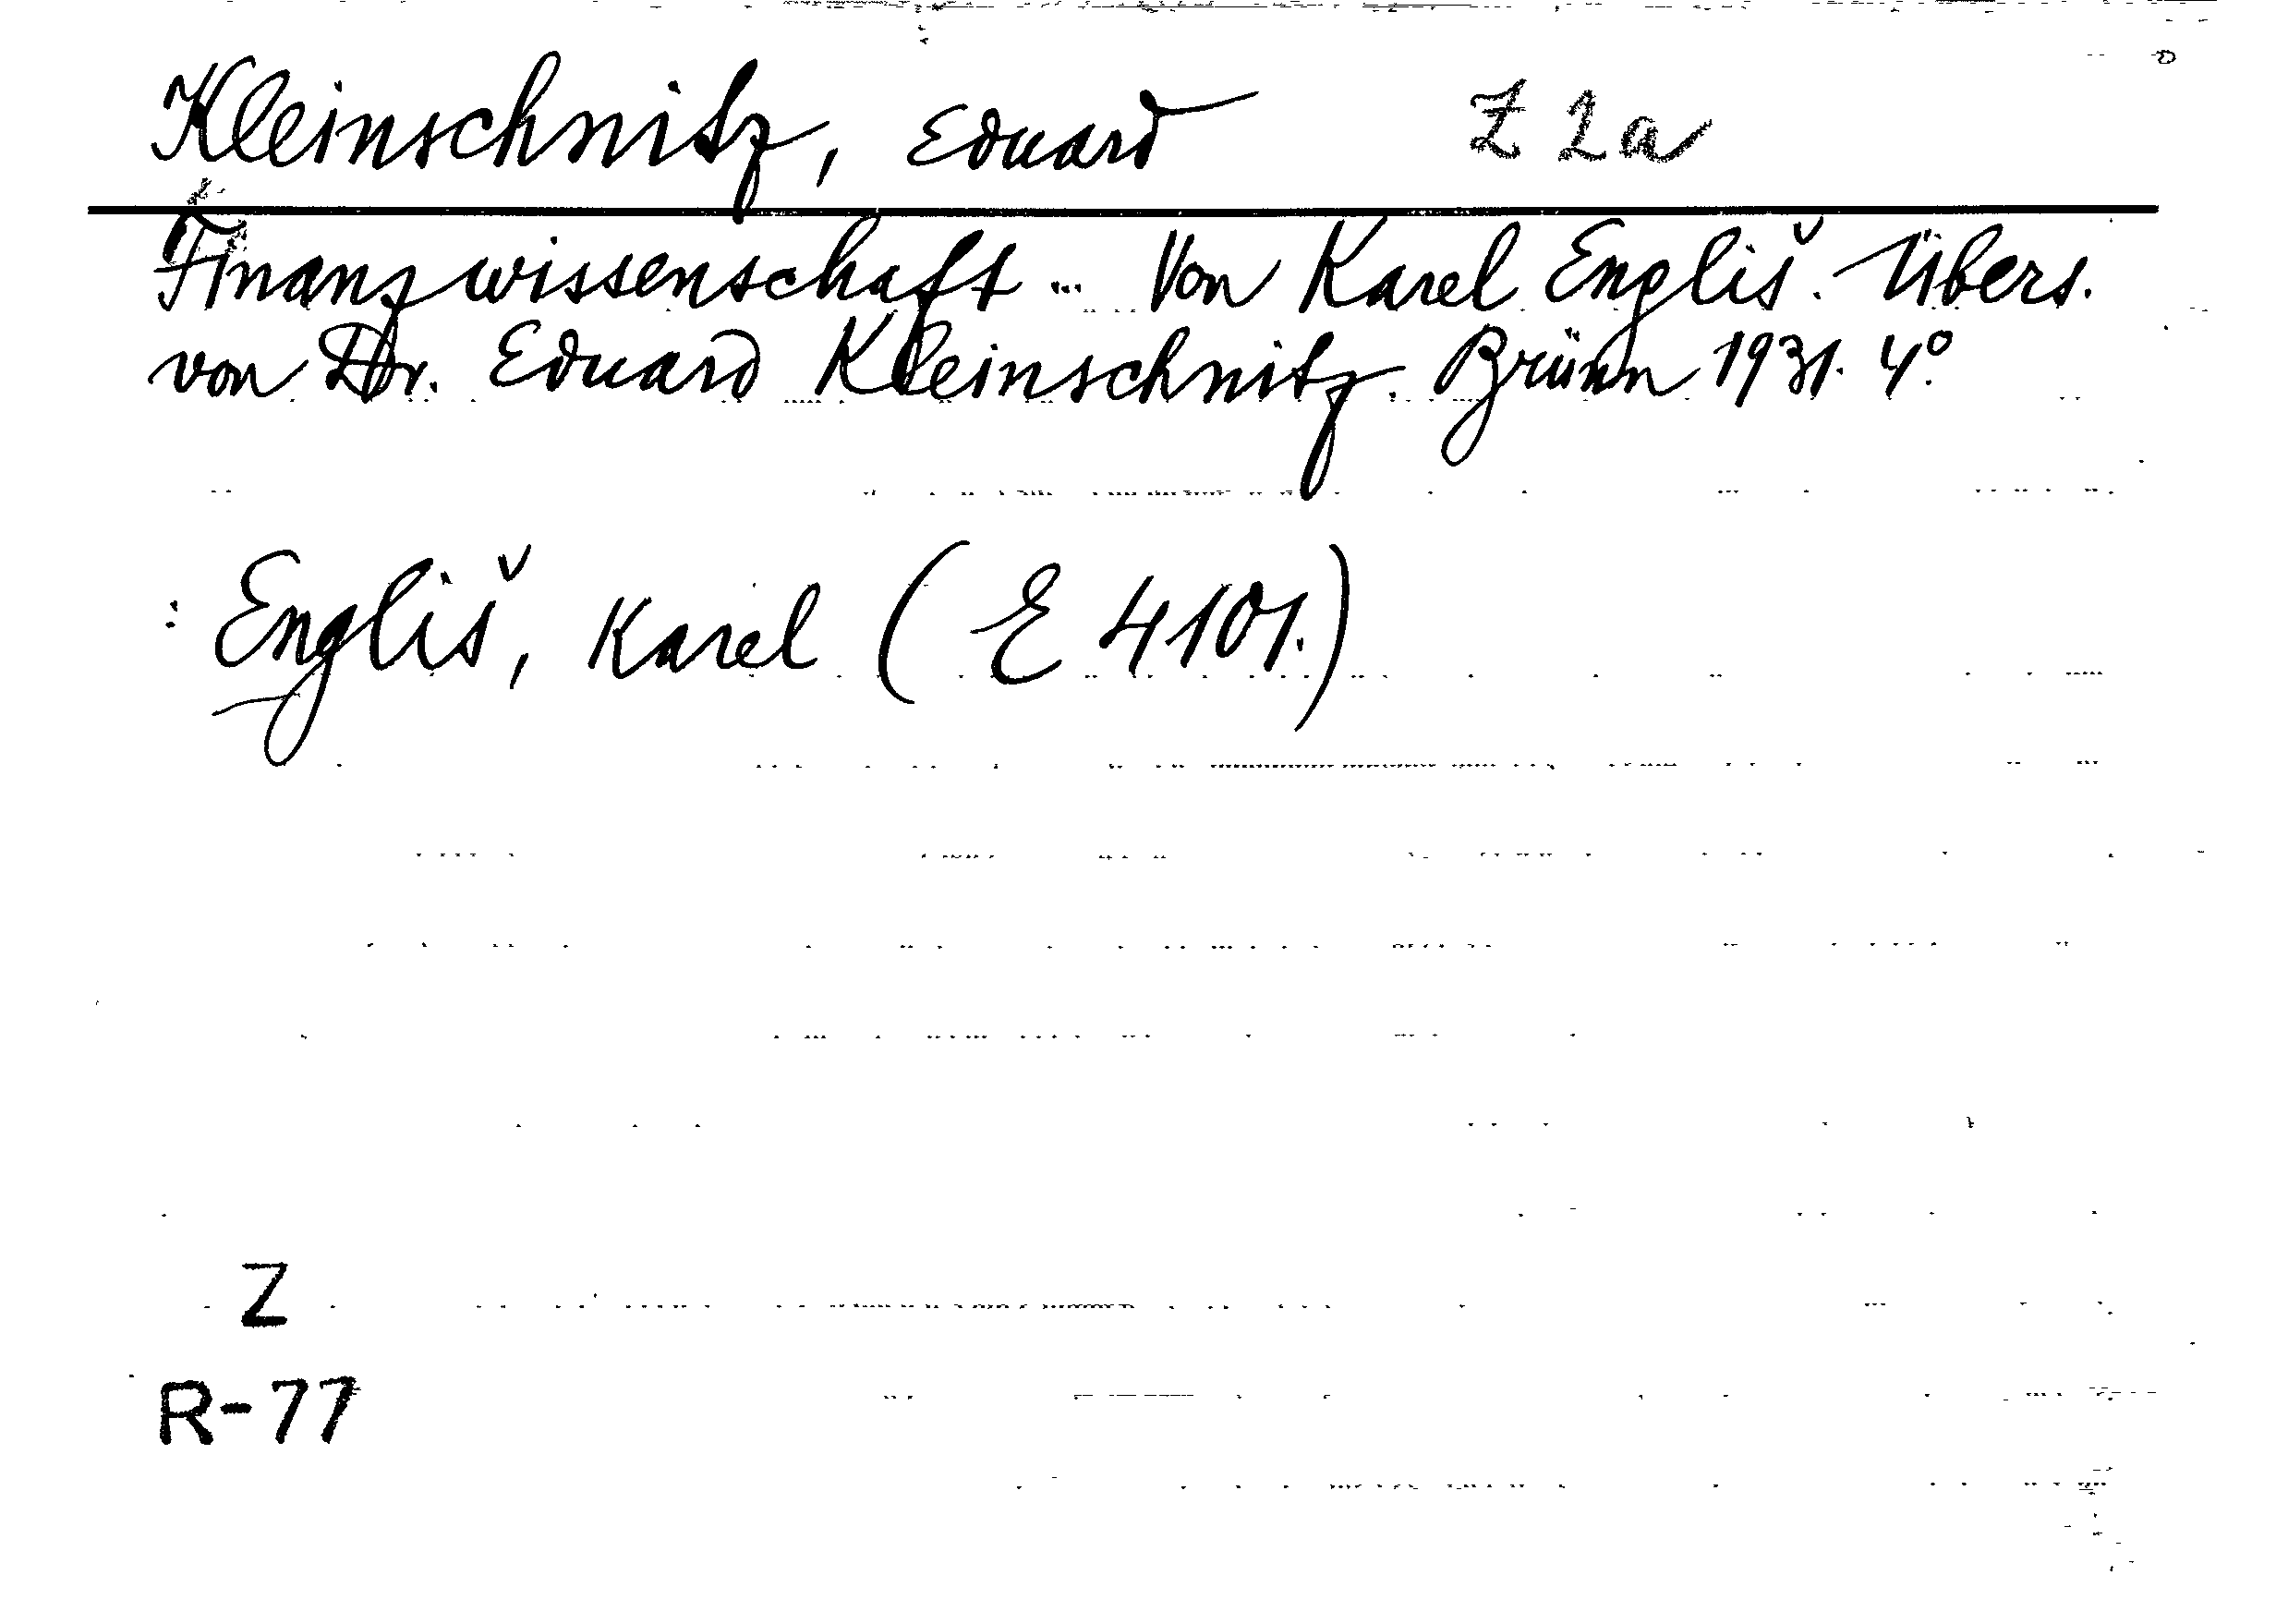 Kleinschnitz, Eduard Z 2a
Finanzwissenschaft ... Von Karel Engliš. Übers.
von Dr. Eduard Kleinschnitz. Brünn 1931. 4°.
: Engliš, Karel (E 4101.)
Z
R-77